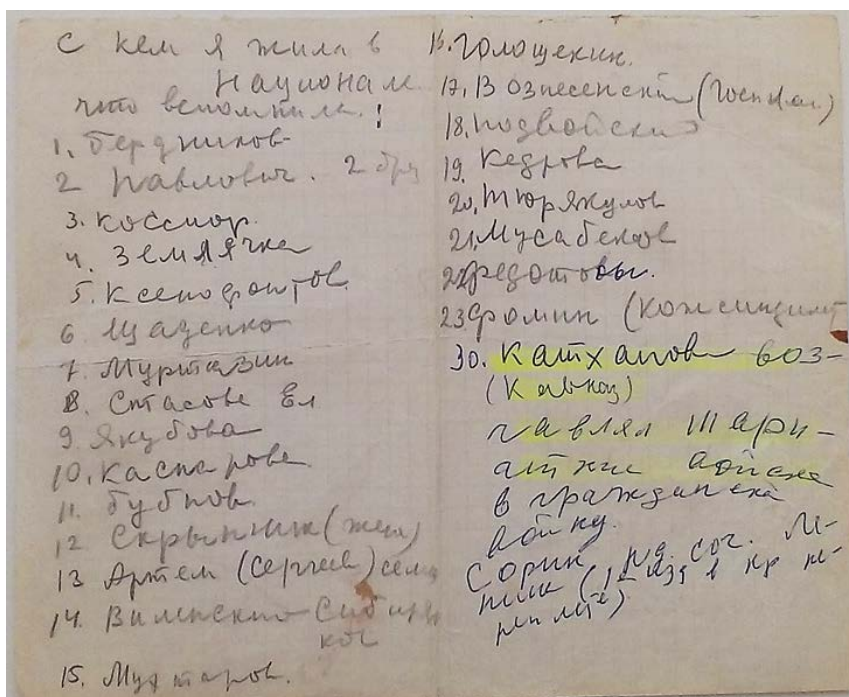 С кем я жила в
Национале
что вспомнила!
1. Бердников
2 Павлович. 2
3. Коссиор.
4. Землячка
5. Ксенофонтов.
6 Мураzенко
7. Муртазин
8. Стасове Ел
9 Якубова
10. Каспарова
11. Бубнов.
12 Скрыпник (жена)
13 Артем (Сергеев) семья
14. Виленский Сибиряков
15. Мухтаров.
16. Голощекин.
17. Вознесенский (Госплан.)
18. Подвойский
19. Кедрова
20. Тюрякулов
21. Мусабеков
22 Федотовы.
23. Фомин
30. Катханов воз-
(Кавказ)
главлял шари-
атские войска
в гражданска
войну.
Сорин, соч.